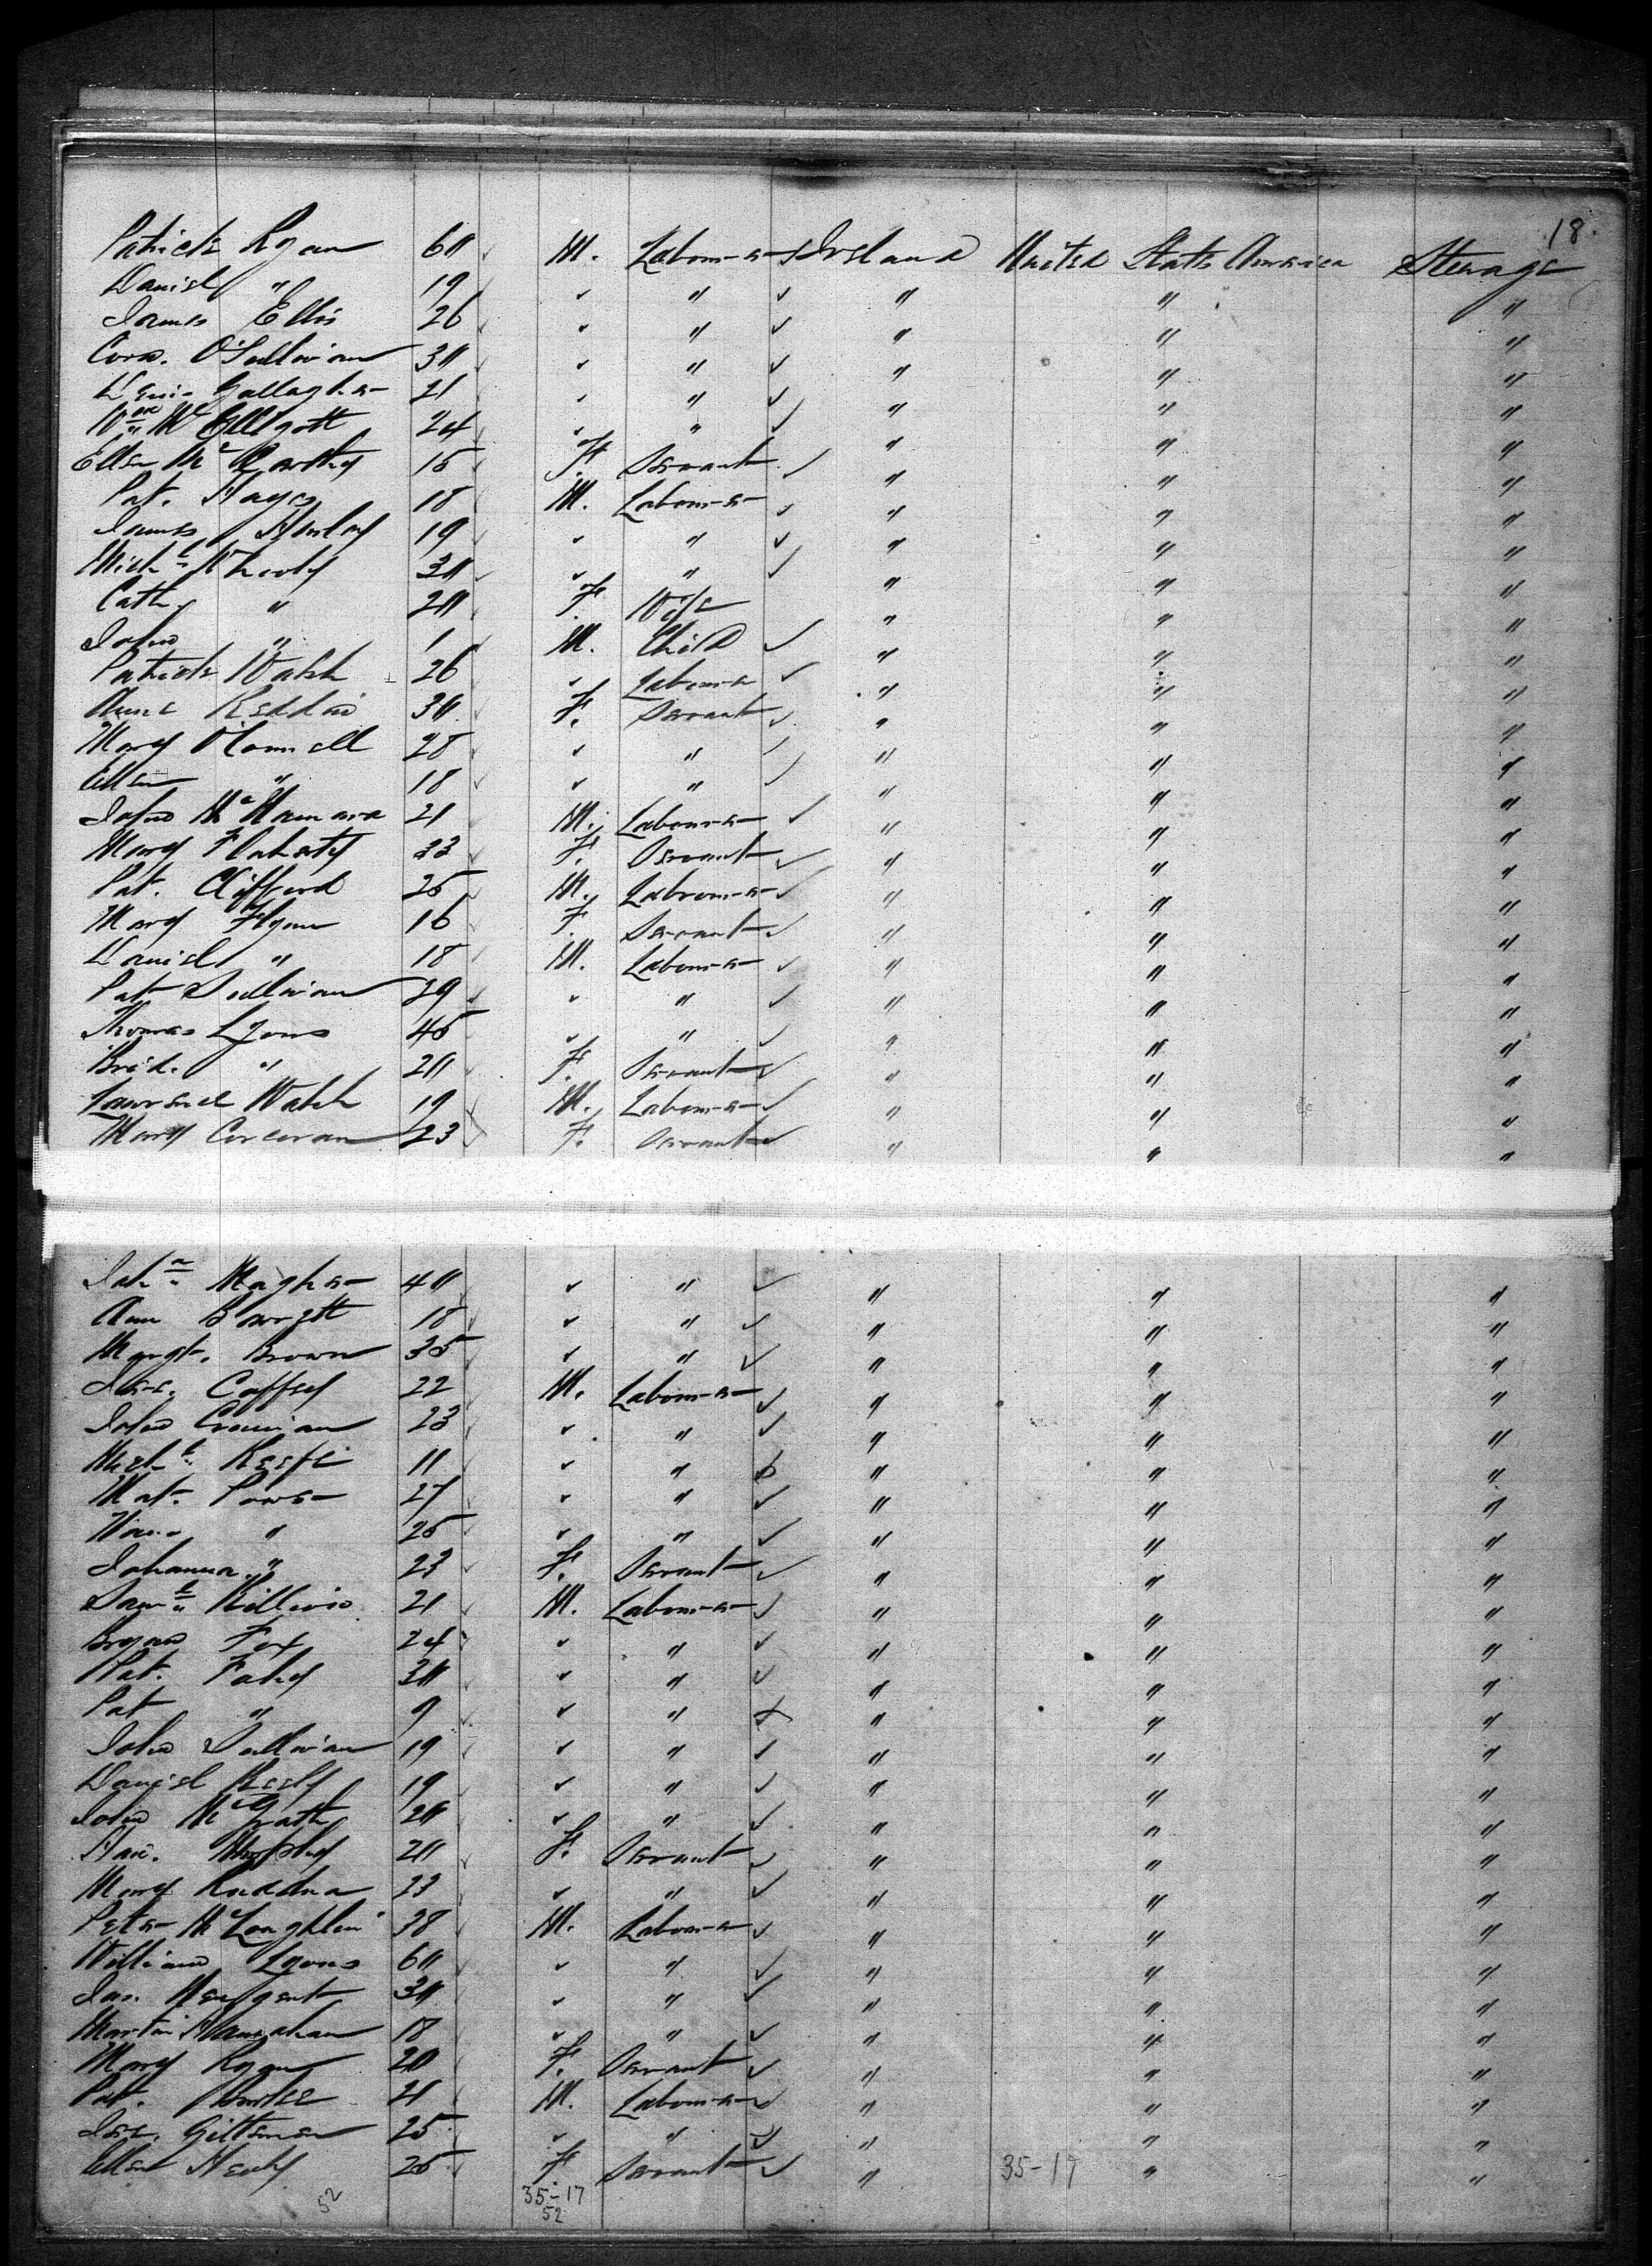 18.
Patrick Ryan 60 M. Labourer Ireland United States America Steerage
Daniel " 19 " " " " "
James Ellis 26 " " " " "
Corn. O'Sullivan 30 " " " " "
Denis Gallagher 21 " " " " "
Wm McElligott 24 " " " " "
Ellen McCarthy 15 F. Servant " " "
Pat. Hayes 18 M. Labourer " " "
James Hurley 19 " " " " "
Michl 30 " " " " "
Cath. " 20 F. Wife " " "
John " 1 M. Child " " "
Patrick Walsh 26 " Labourer " " "
Anne Reddin 30 F. Servant " " "
Mary O'Connell 28 " " " " "
Ellen " 18 " " " " "
John McNamara 21 M. Labourer " " "
Mary Flaherty 22 F. Servant " " "
Pat. Clifford 25 M. Labourer " " "
Mary Flynn 16 F. Servant " " "
Daniel " 18 M. Labourer " " "
Pat Sullivan 39 " " " " "
Thomas Lyons 45 " " " " "
Brid. " 20 F. Servant " " "
Lawrence Walsh 19 M. Labourer " " "
Mary Corcoran 23 F. Servant " " "
Joha Magher 40 " " " " "
Ann Barrett 18 " " " " "
Margt. Brown 35 " " " " "
Jere. Coffey 22 M. Labourer " " "
John Cronian 23 " " " " "
Michl Keefe 11 " " " " "
Mat. Power 27 " " " " "
" 25 " " " " "
Johanna " 23 F. Servant " " "
Saml Killivin 21 M. Labourer " " "
Bryan Fox 24 " " " " "
Pat. Fahey 30 " " " " "
Pat " 9 " " " " "
John Sullivan 19 " " " " "
Daniel Keely 19 " " " " "
John McGrath 20 " " " " "
Han. Murphy 20 F. Servant " " "
Mary 23 " " " " "
Peter McLoughlin 38 M. Labourer " " "
William Lyons 60 " " " " "
Jas. 30 " " " " "
Martin Hanrahan 18 " " " " "
Mary Ryan 20 F. Servant " " "
Pat. Bourke 21 M. Labourer " " "
Jas. Giltenan 25 " " " " "
Ellen Healy 25 F. Servant " 35-17 " "
52 35-17
52